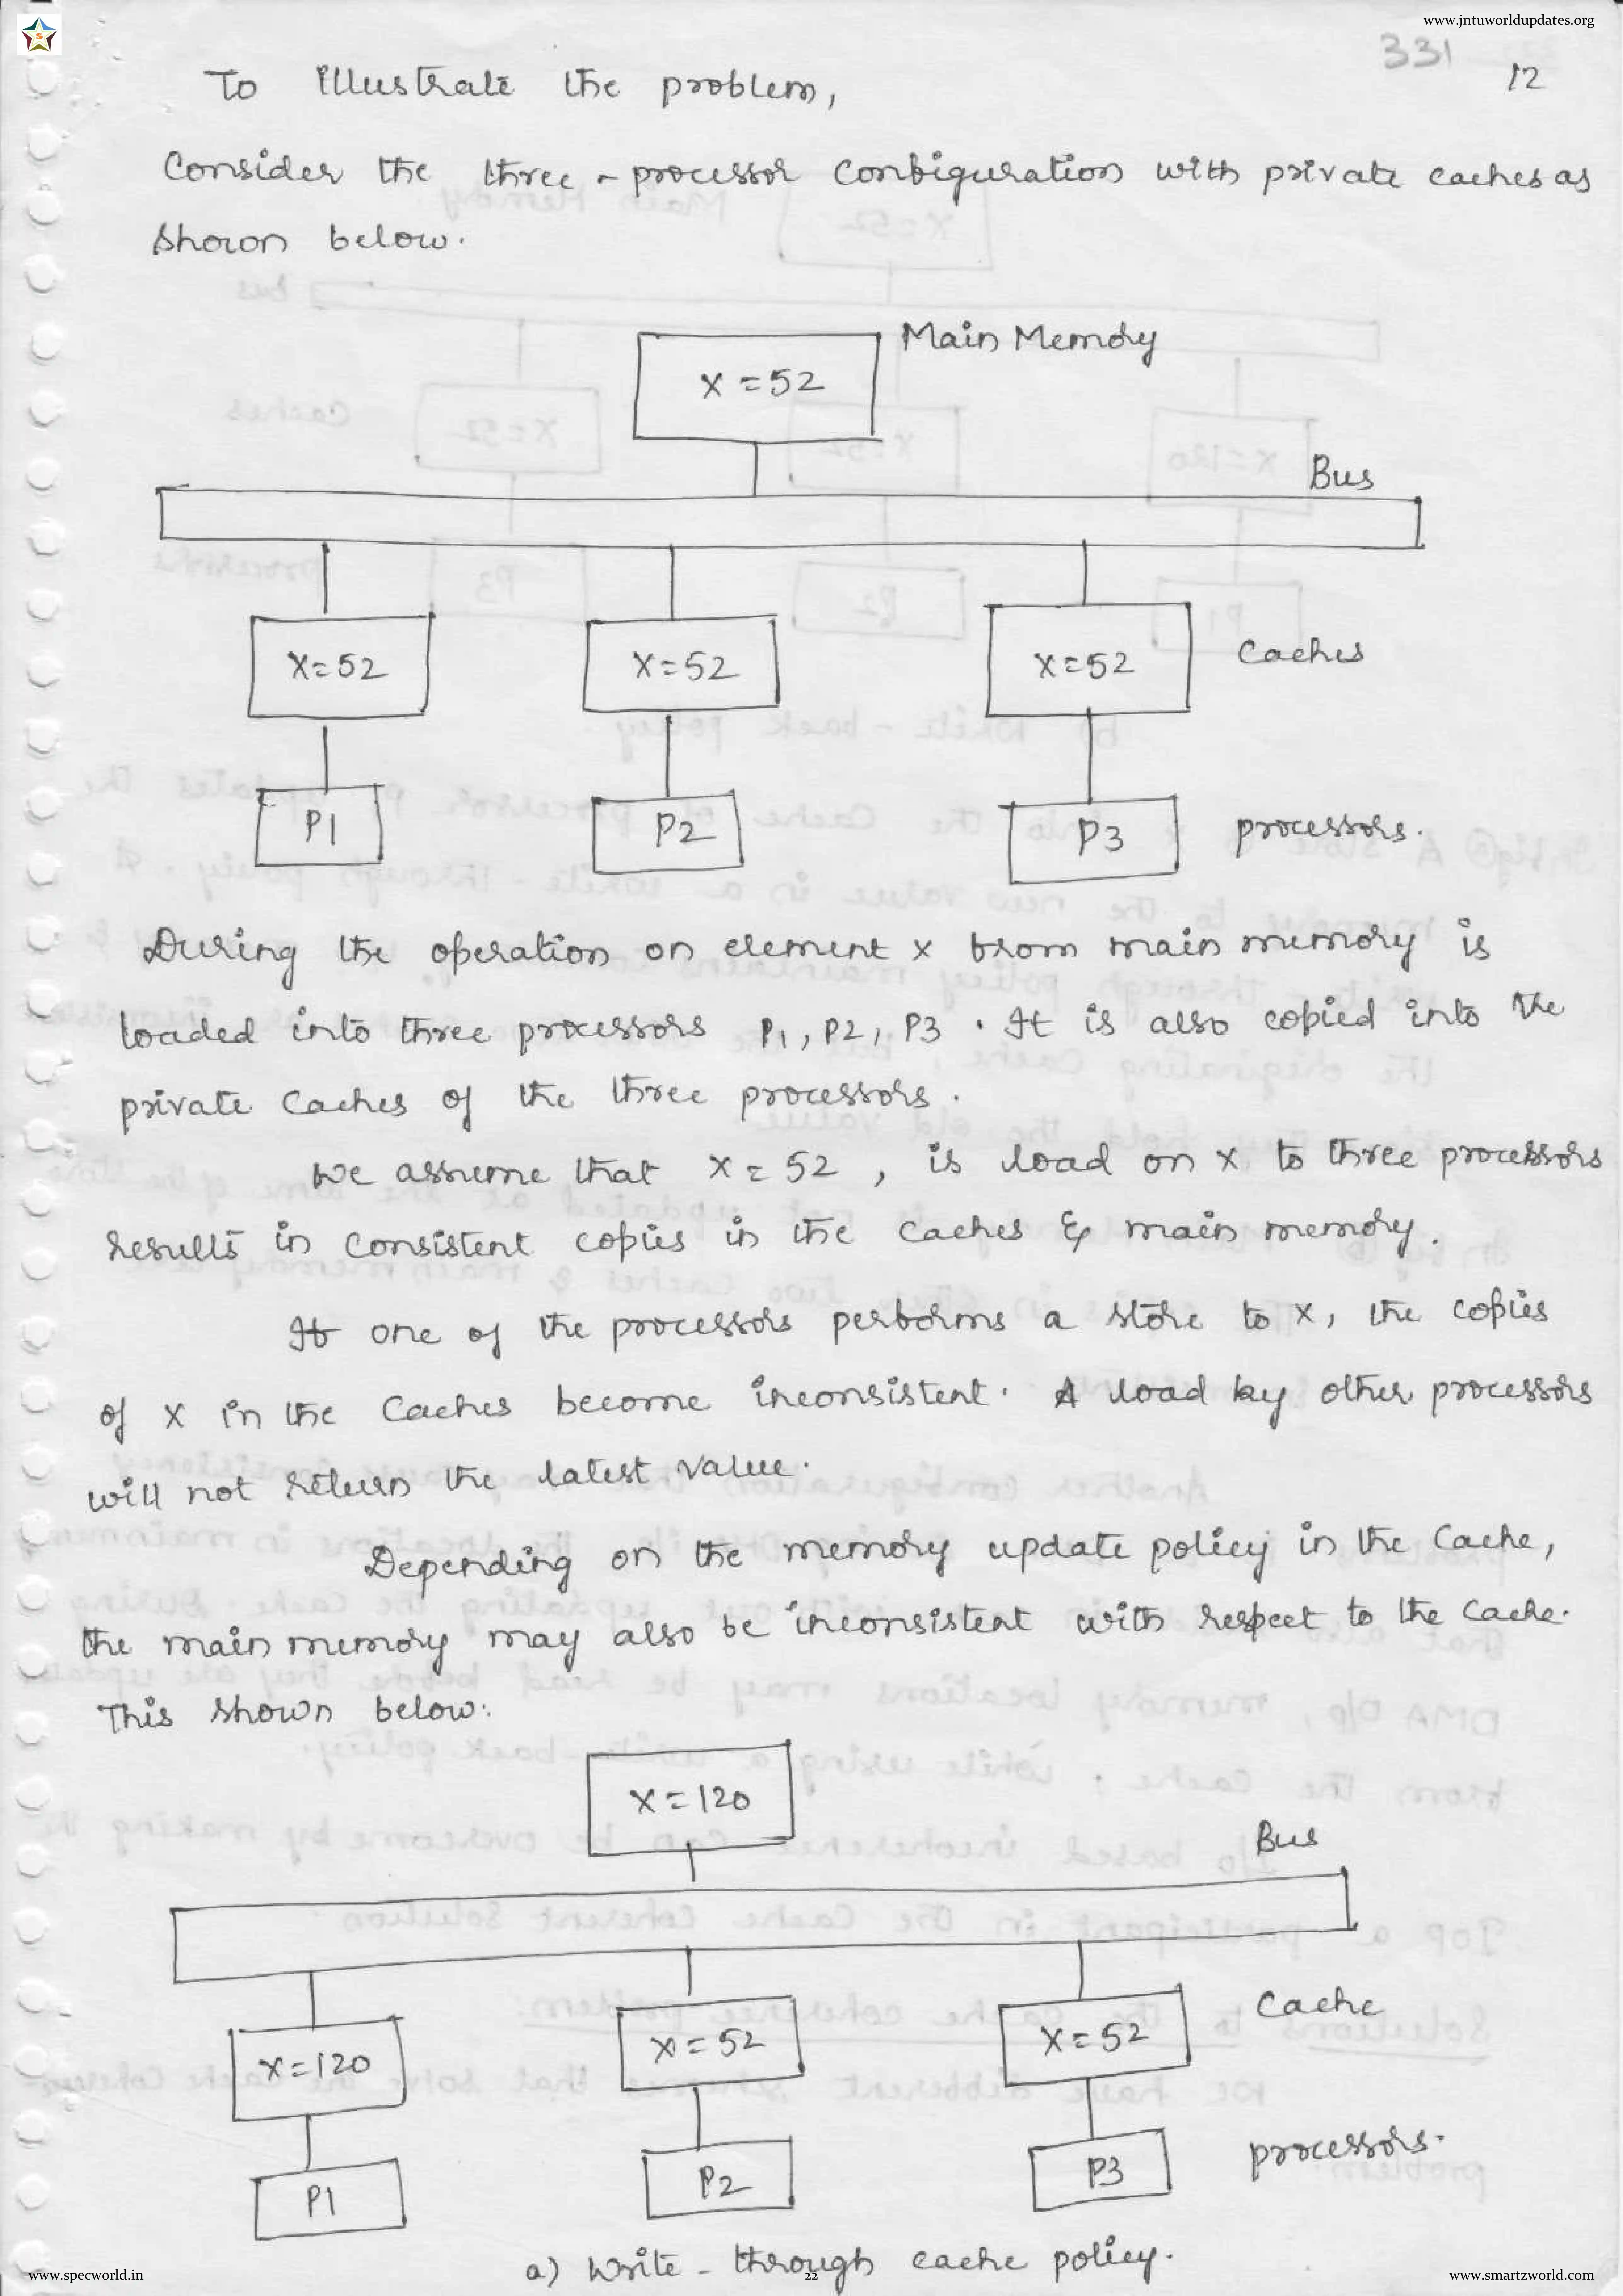 www.jntuworldupdates.org
S
331
12
To illustrate the problem,
Consider the three - processor configuration with private caches as
shown below.
Main Memory
X = 52
Bus
X = 52 X = 52 X = 52 Caches
P1 P2 P3 processors.
During the operation on element x from main memory is
loaded into three processors P1, P2, P3 . It is also copied into the
private caches of the three processors .
We assume that X = 52 , is load on X to three processors
results in consistent copies in the caches & main memory .
If one of the processors performs a store to X, the copies
of X in the caches become inconsistent. A load by other processors
will not return the latest value.
Depending on the memory update policy in the Cache,
the main memory may also be inconsistent with respect to the cache.
This shown below:
X = 120
Bus
X = 120 X = 52 X = 52 Cache
P1 P2 P3 processors.
a) Write - through cache policy.
www.specworld.in 22 www.smartzworld.com